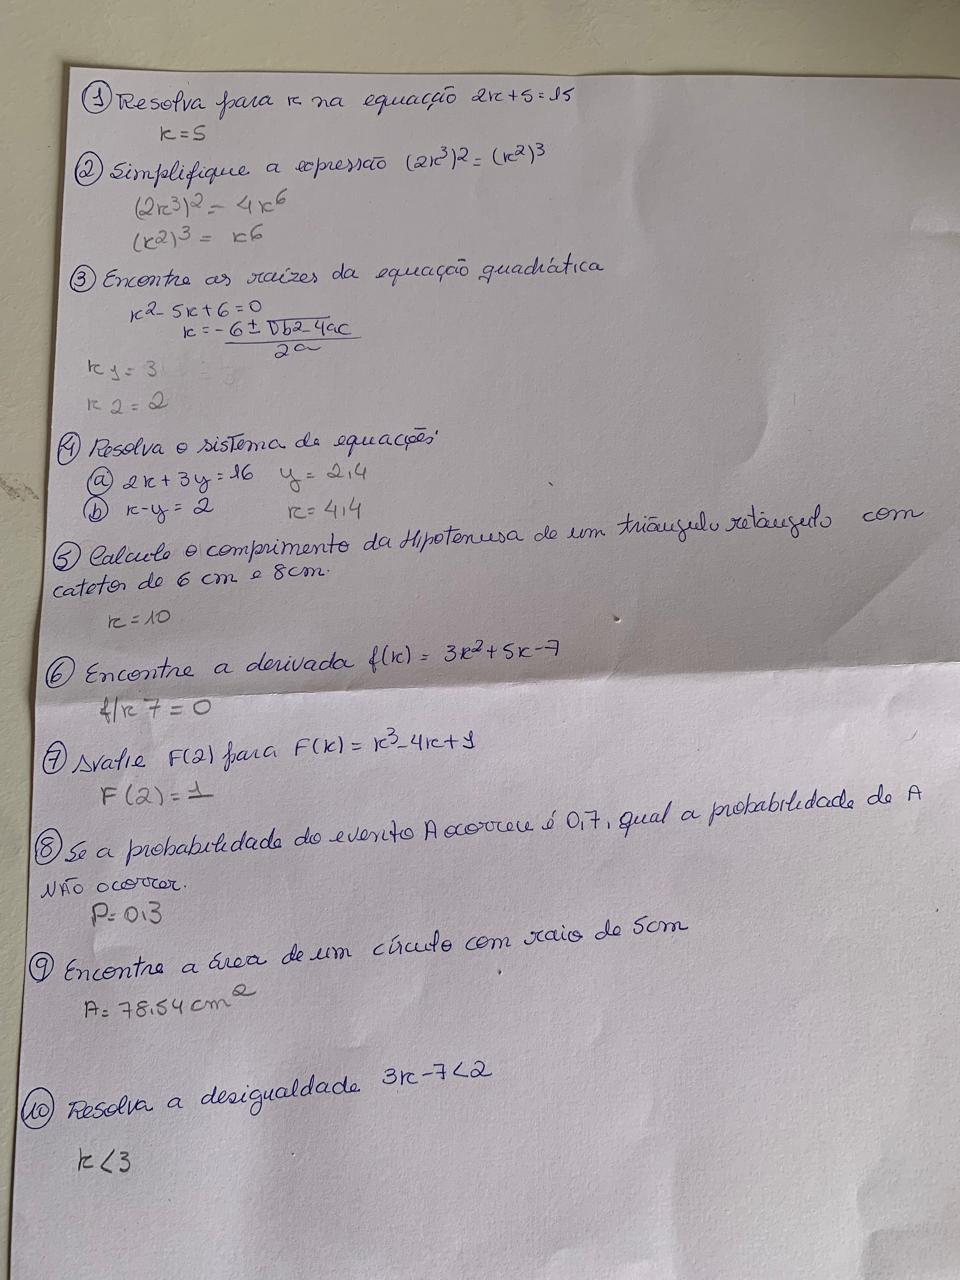 ① Resolva para x na equação 2x+5=15
x=5
② Simplifique a expressão (2x³)2=(x²)³
(2x³)²= 4x⁶
(x2)³ = x6
③ Encontre as raízes da equação quadrática
x²-5x+6=0
x=-6±√b2-4ac
2a
x1=3
x2=2
④ Resolva o sistema de equações:
ⓐ 2x+3y=16 y=2,4
ⓑ x-y=2 x=4,4
⑤ Calcule o comprimento da Hipotenusa de um triângulo retângulo com
catetos de 6 cm e 8cm.
x=10
⑥ Encontre a derivada f(x)= 3x²+5x-7
f/x 7=0
⑦ Avalie F(2) para F(x)=x³-4x+1
F(2)=1
⑧ Se a probabilidade do evento A ocorreu é 0,7, qual a probabilidade de A
NÃO ocorrer.
P=0,3
⑨ Encontre a área de um círculo com raio de 5cm
A=78,54cm²
⑩ Resolva a desigualdade 3x-7<2
x<3